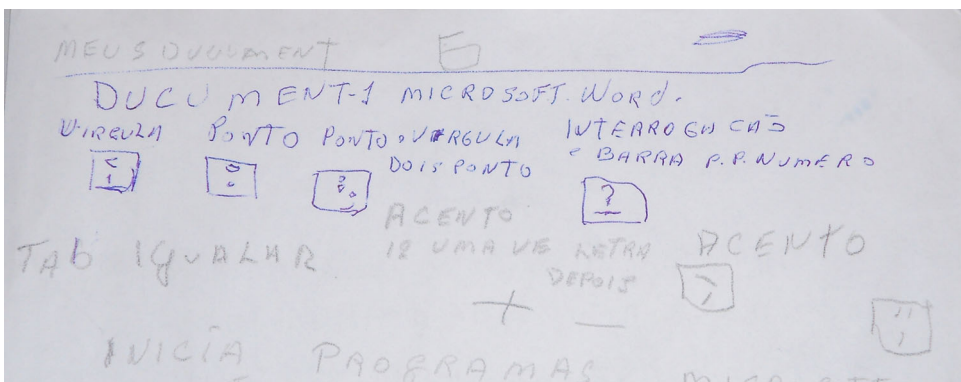 MEUS DUCUMENT E
DUCUMENT-1 MICROSOFT. WORD.
VIRGULA PONTO PONTO, VIRGULA INTERROGACAÕ
DOIS PONTO e BARRA P.P. NUMERO
?
ACENTO
TAB IGUALAR 12 UMA VE LETRA ACENTO
DEPOIS
+ -
INICIA PROGRAMAS